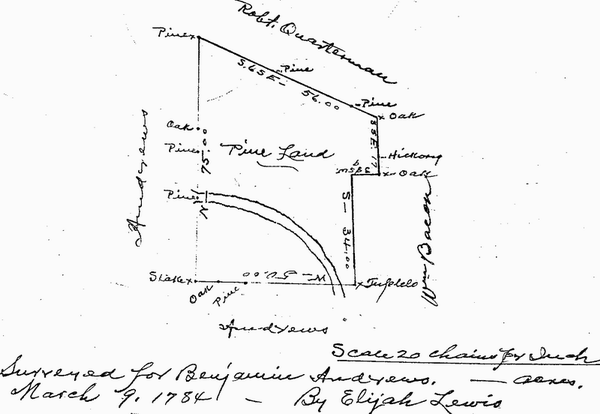 Robt. Quarterman
Pine
S. 65 E - 56.00
Pine
Pine
Oak
Oak
Pine
Pine
N 75.00
Pine Land
S 5 E. 17
Hickory
Oak
S 85 W. 7
S - 34.00
Andrews
Wm Bacon
Stake
Oak
Pine
W - 50.00
Tupolelo
Andrews
Scale 20 chains for Inch
Surveyed for Benjamin Andrews. — acres.
March 9. 1784 — By Elijah Lewis